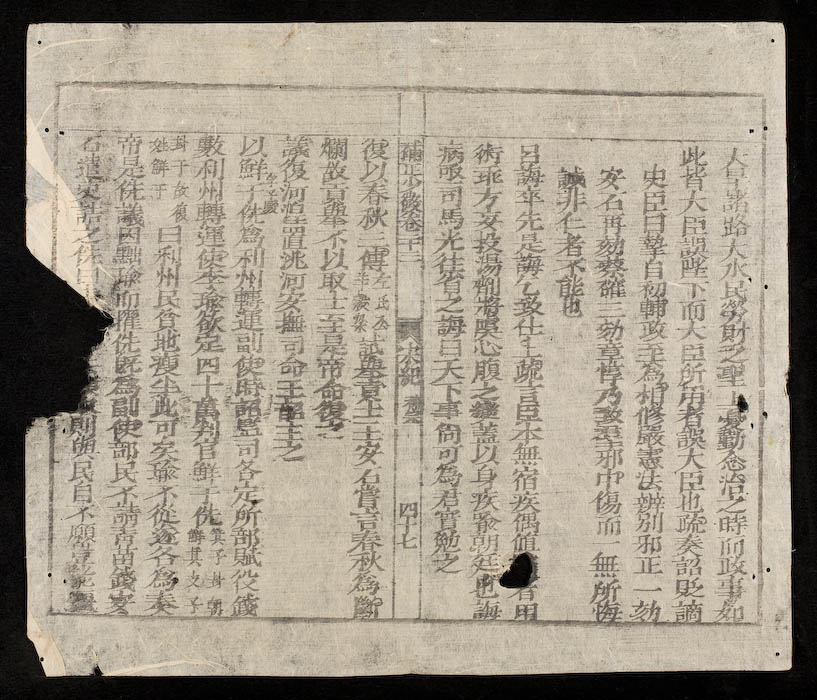 大旱諸路大水民勞財乏聖上憂勤念治之時而政事如
此皆大臣誤陛下而大臣所用者誤大臣也疏奏詔貶謫
史臣曰摯自初輔政至為相修嚴憲法辨別邪正一劾
安石再劾蔡確三劾章惇乃致羣邪中傷而一無所悔
誠非仁者不能也
呂誨卒先是誨乞致仕上疏言臣本無宿疾偶值醫者用
術乖方妄投湯劑將虞心腹之變蓋以身疾喻朝廷也誨
病亟司馬光往省之誨曰天下事尚可為君實勉之
少微卷二十三
宋紀
四十七
復以春秋三傳左氏公羊穀梁試舉貢士王安石嘗言春秋為斷
爛故貢舉不以取士至是帝命復之
議復河湟置洮河安撫司命王韶主之
以鮮于侁為利州轉運副使時詔監司各定所部賦役錢
數利州轉運使李瑜欲定四十萬判官鮮于侁箕子封朝鮮其支子
封于故復姓鮮于曰利州民貧地瘦半此可矣瑜不從遂各為奏
帝是侁議因黜瑜而擢侁既為副使部民不請青苗錢安
石遣吏詰之侁曰則與民自不願豈能強